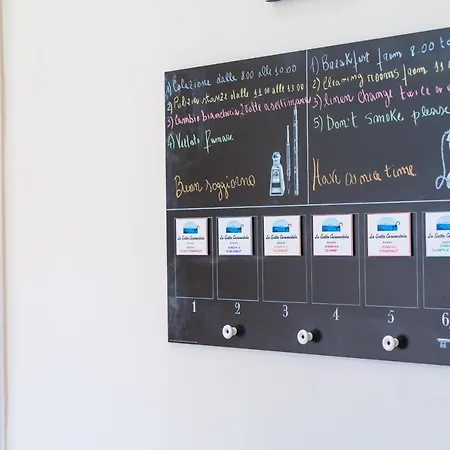 1) Colazione dalle 8.00 alle 10.00
2) Pulizia stanze dalle 11.00 alle 13.00
3) Cambio biancheria 2 volte a settimana
4) Vietato fumare
Buon soggiorno
1) Breakfast from 8:00 to
2) Cleaning rooms from 11.00
3) linen change twice a
5) Don't smoke please
Have a nice time
La Grotta
La Grotta
La Grotta
La Grotta
La Grotta
La Grotta
1 2 3 4 5 6